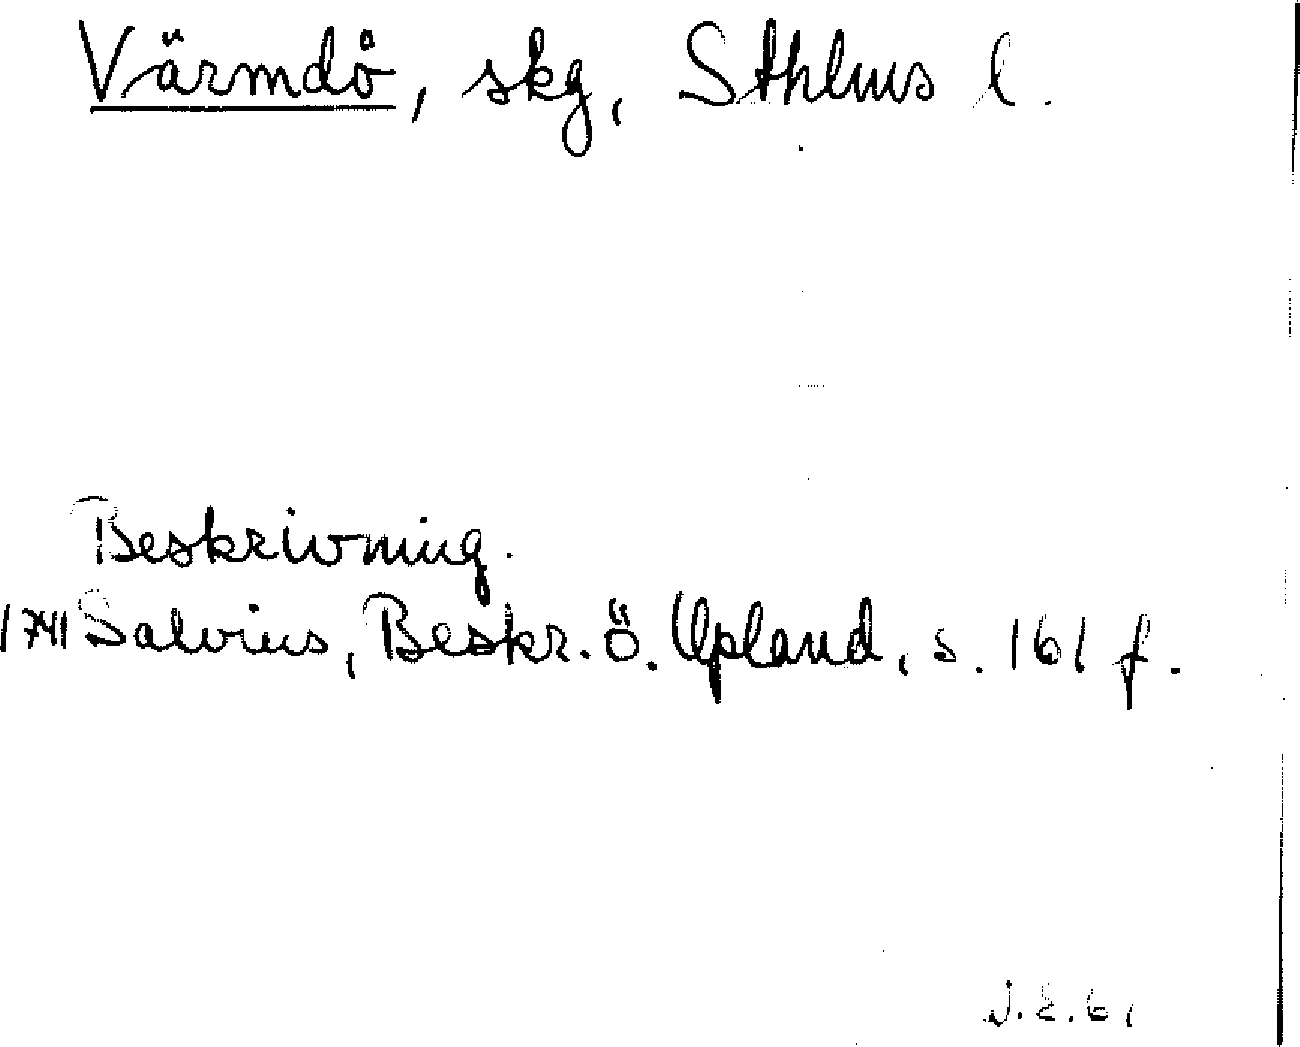 Värmdö, skg, Sthlms l.
Beskrivning.
1741 Salvius, Beskr. ö. Upland, s. 161 f.
J.E. 61